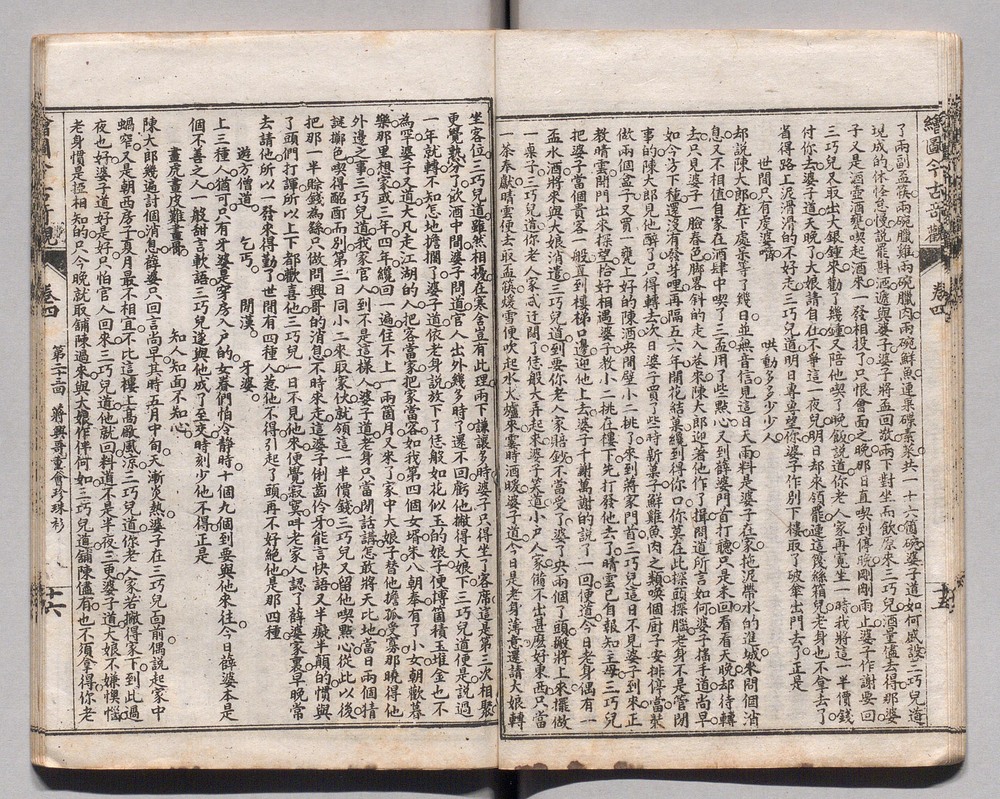 繪圖今古奇觀
卷四
十五
了兩副盃筷兩碗臘雞兩碗臘肉兩碗鮮魚連菓碟素菜共一十六個碗婆子道如何盛設三巧兒道
現成的休怪怠慢說罷斟酒遞與婆子婆子將盃回敬兩下對坐而飲原來三巧兒酒量儘去得那婆
子又是酒壺酒甕喫起酒來一發相投了只恨會面之晚那日直喫到傍晚剛剛雨止婆子作謝要回
三巧兒又取出大銀鍾來勸了幾鍾又陪他喫了晚飯說道你老人家再寬坐一時我將這一半價錢
付你去婆子道天晚了大娘請自在不爭這一夜兒明日却來領罷連這篾絲箱兒老身也不拿去了
省得路上泥滑滑的不好走三巧兒道明日專專望你婆子作別下樓取了破傘出門去了正是
世間只有虔婆嘴　　哄動多多少少人
却說陳大郎在下處呆等了幾日並無音信見這日天雨料是婆子在家拖泥帶水的進城來問個消
息又不相值自家在酒肆中喫了三盃用了些點心又到薛婆門首打聽只是未回看看天晚却待轉
去只見婆子一臉春色脚畧斜的走入巷來陳大郎迎着他作了揖問道所言如何婆子搖手道尚早
如今方下種還沒有發芽哩再隔五六年開花結菓纔到得你口你莫在此探頭探腦老身不是管閒
事的陳大郎見他醉了只得轉去次日婆子買了些時新菓子鮮雞魚肉之類喚個厨子安排停當裝
做兩個盒子又買一甕上好的陳酒央間壁小二挑了來到蔣家門首三巧兒這日不見婆子到來正
教晴雲開門出來探望恰好相遇婆子教小二挑在樓下先打發他去了晴雲已自報知主母三巧兒
把婆子當個貴客一般直到樓梯口邊迎他上去婆子千謝萬謝的說了一回便道今日老身偶有一
盃水酒將來與大娘消遣三巧兒道到要你老人家賠鈔不當受了婆子央兩個了頭搬將上來擺做
一桌子三巧兒道你老人家忒迂闊了恁般大弄起來婆子笑道小戶人家備不出甚麽好東西只當
茶奉獻晴雲便去取盃筷煖雪便吹起水火爐來霎時酒暖婆子道今日是老身薄意還請大娘轉
坐客位三巧兒道雖然相擾在寒舍豈有此理兩下謙讓多時婆子只得坐了客席這是第三次相聚
更覺熟穿了飲酒中間婆子問道官人出外幾多時了還不回虧他撇得大娘下三巧兒道便是說過
一年就轉不知怎地擔擱了婆子道依老身說放下了恁般如花似玉的娘子便博箇積玉堆金也不
為罕婆子又道大凡走江湖的人把客當家把家當客如我第四個女婿朱八朝奉有了小女朝歡暮
樂那里想家或三年四年纔回一遍住不上一兩個月又來了家中大娘子替他擔孤受寡那曉得他
外邊之事三巧兒道我家官人到不是這樣人婆子道老身只當閒話講怎敢將天比地當日兩個猜
謎擲色喫得酩酊而別第三日同小二來取家伙就領這一半價錢三巧兒又留他喫點心從此以後
把那一半賒錢為繇只做問興哥的消息不時來走這婆子俐齒伶牙能言快語又半癡半顛的慣與
了頭們打諢所以上下都歡喜他三巧兒一日不見他來便覺寂寞呌老家人認了薛婆家裏早晚常
去請他所以一發來得勤了世間有四種人惹他不得引起了頭再不好絕他是那四種
遊方僧道　乞丐　閒漢　牙婆
上三種人猶可只有牙婆是穿房入戶的女眷們怕冷靜時十個九個到要與他來往今日薛婆本是
個不善之人一般甜言軟語三巧兒遂與他成了至交時刻少他不得正是
畫虎畫皮難畫骨　　知人知面不知心
陳大郎幾遍討個消息薛婆只回言尚早其時五月中旬天漸炎熱婆子在三巧兒面前偶說起家中
蝸窄又是朝西房子夏月最不相宜不比這樓上高廠風凉三巧兒道你老人家若撇得家下到此過
夜也好婆子道好是好只怕官人回來三巧兒道他就回料道不是半夜三更婆子道大娘不嫌懊惱
老身慣是挜相知的只今晚就取舖陳過來與大娘作伴何如三巧兒道舖陳儘有也不須拿得你老
繪圖今古奇觀
卷四
第二十三回　蔣興哥重會珍珠衫
十六